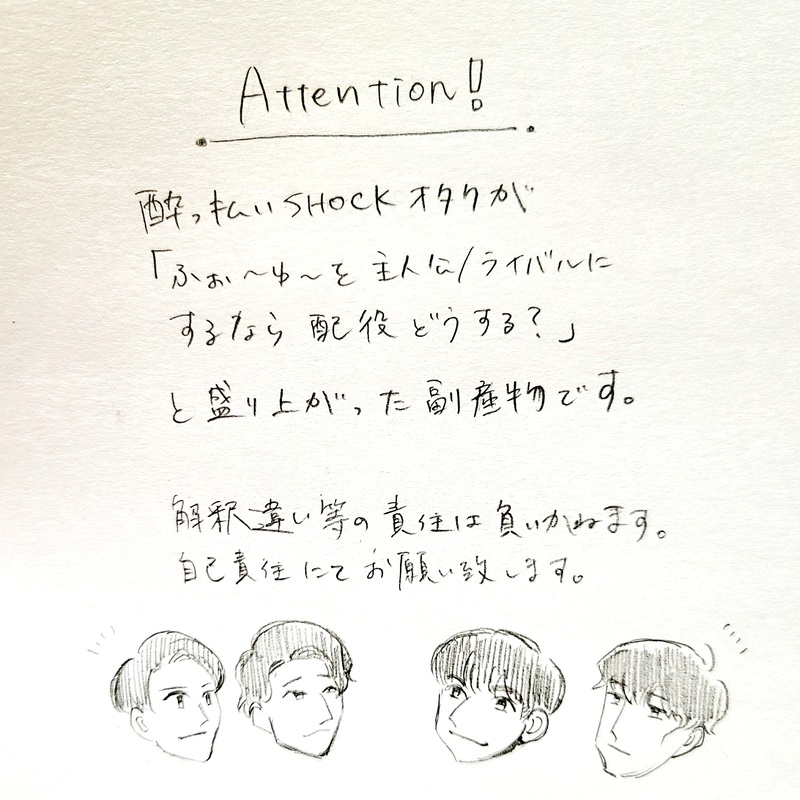 Attention!
酔っ払いSHOCKオタクが
「ふぉ〜ゆ〜を主人公/ライバルに
するなら配役どうする？」
と盛り上がった副産物です。
解釈違い等の責任は負いかねます。
自己責任にてお願い致します。